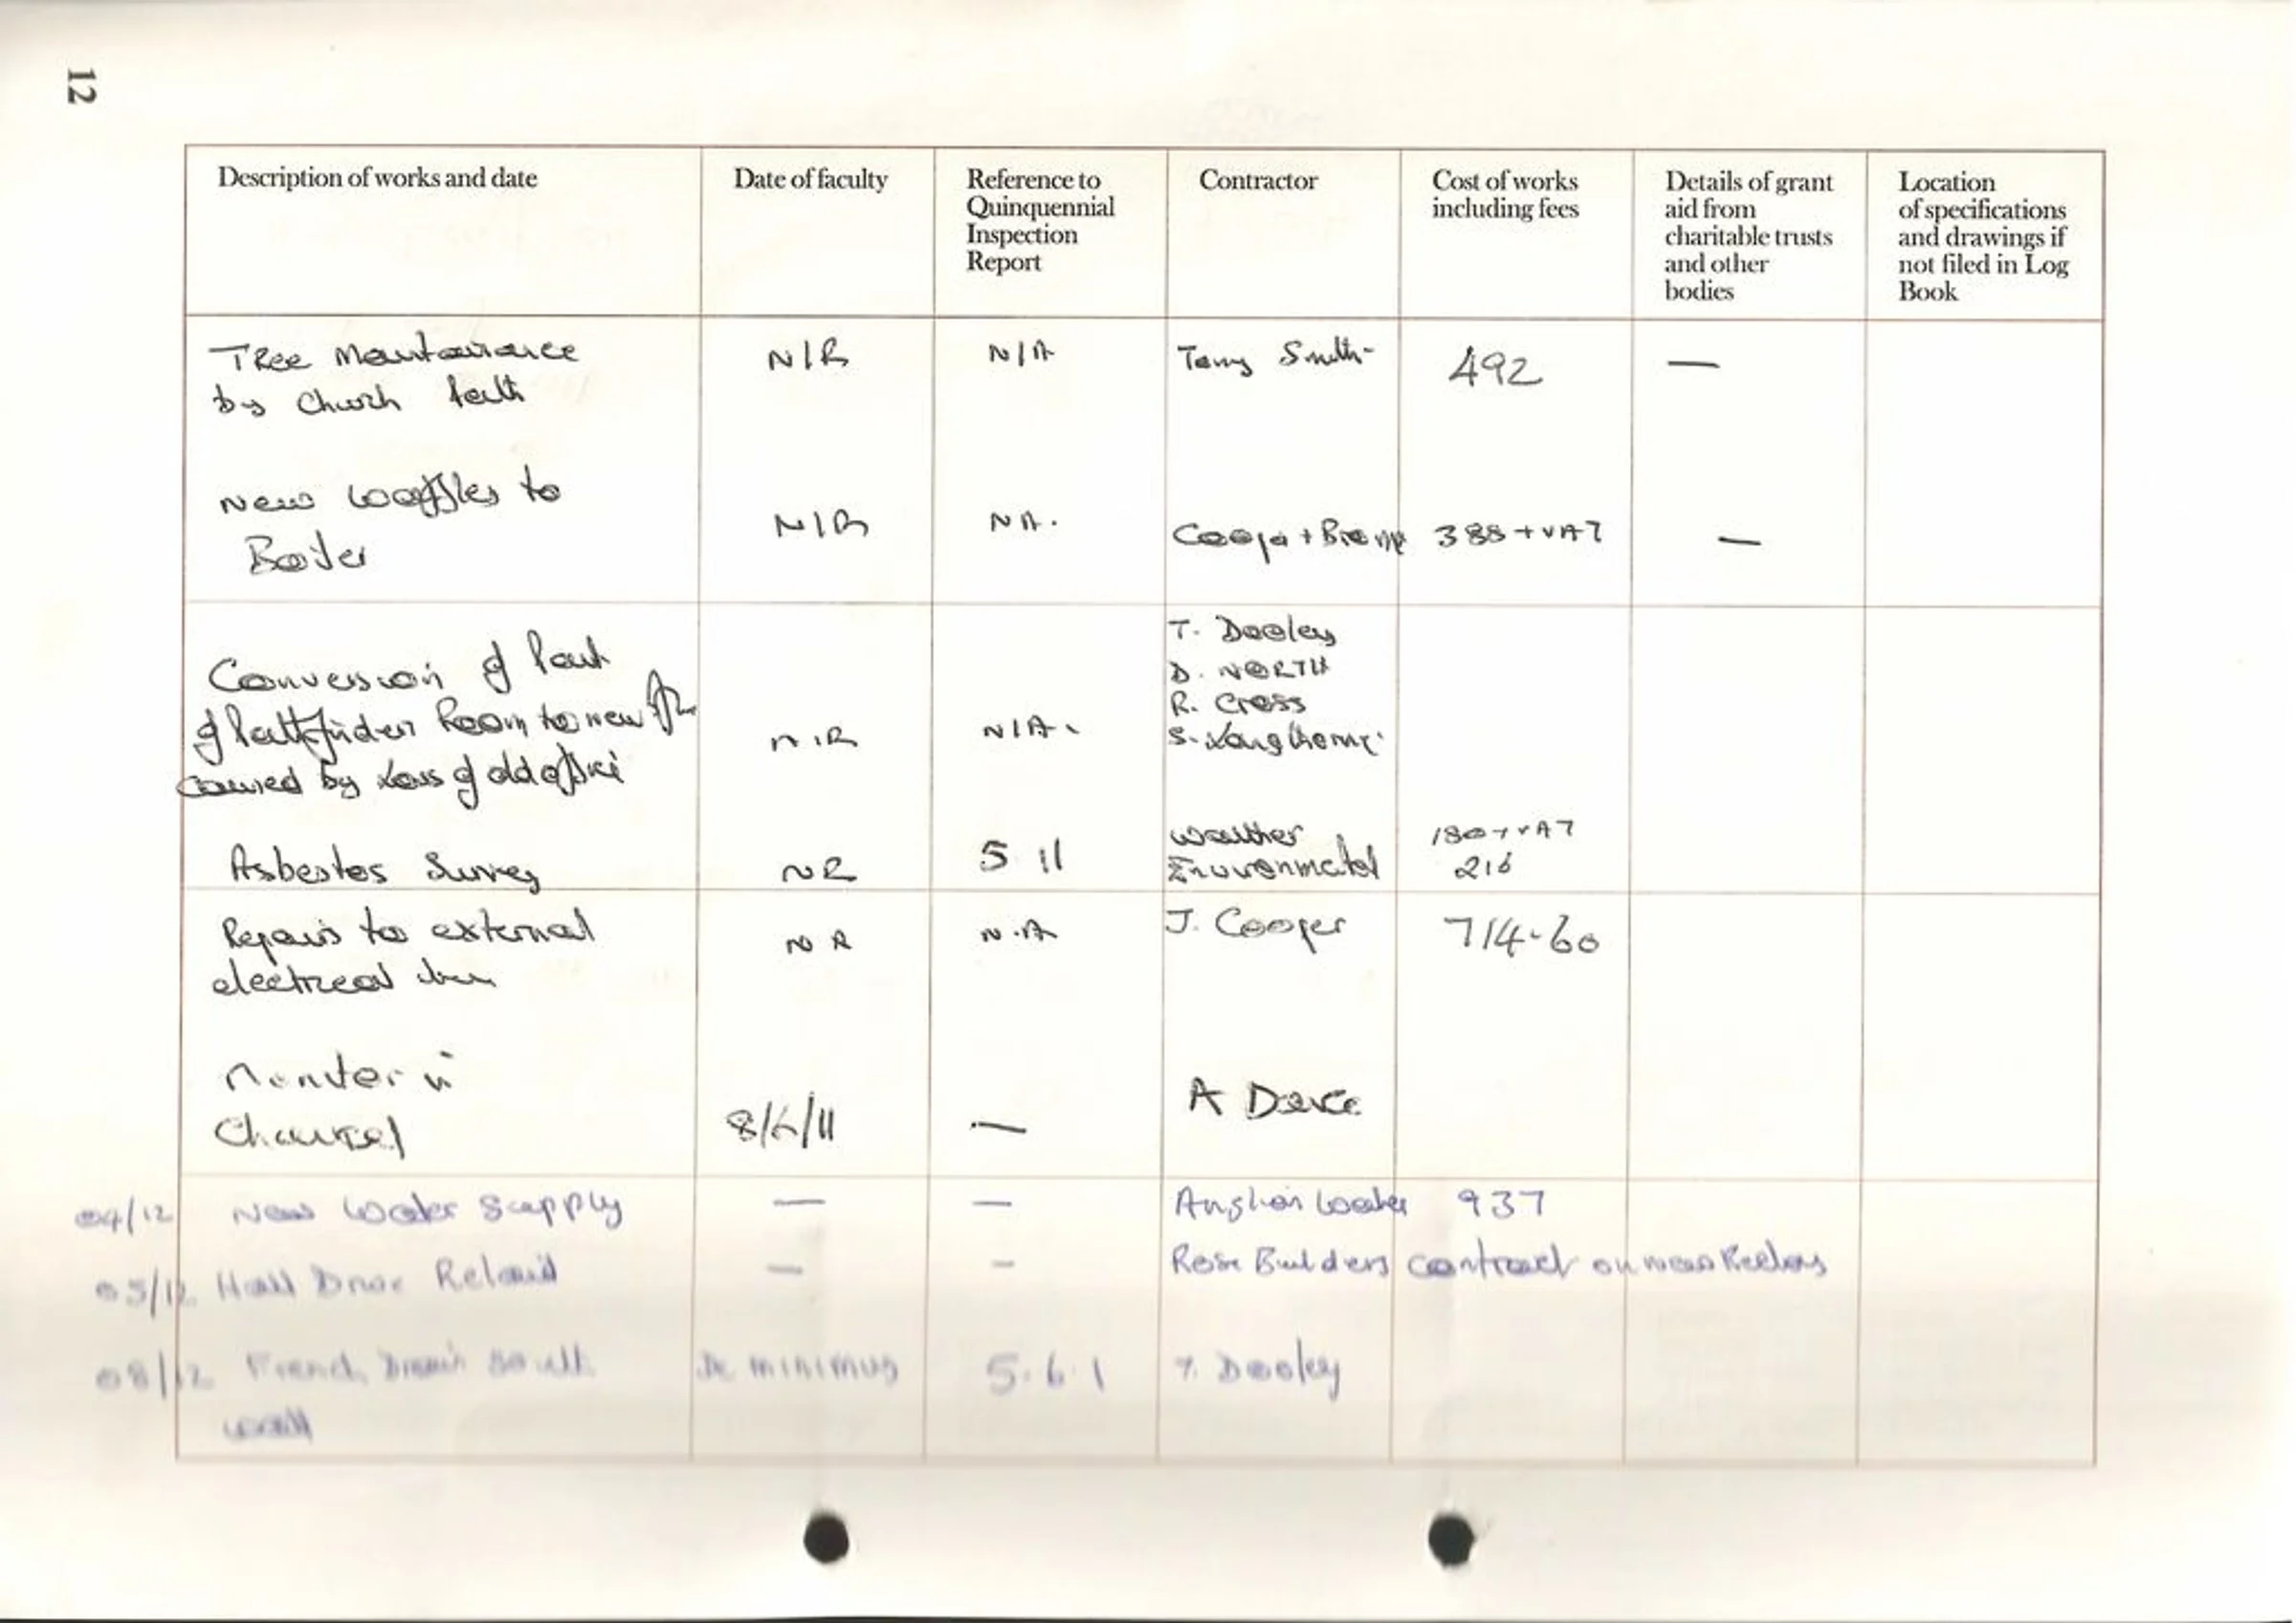 12
Description of works and date
Date of faculty
Reference to
Quinquennial
Inspection
Report
Contractor
Cost of works
including fees
Details of grant
aid from
charitable trusts
and other
bodies
Location
of specifications
and drawings if
not filed in Log
Book
Tree Maintainance
by Church Path
N/R
N/A
Tony Smith
492
—
New to
Boiler
N/R
NA.
Cooper + 388 + VAT
—
Conversion of Part
of Pathfinder Room to new
caused by loss of old office
N.R
N/A.
T. Dooley
D. NORTH
R. Cross
S. Langthorne
Asbestos Survey
NR
5 11
Environmental
180 + VAT
216
Repairs to external
electrical
N R
N.A
J. Cooper
714-60
Monitor in
Chancel
8/6/11
—
A
04/12 New Water Supply
—
—
Anglian Water 937
05/12 Hall Drive Relaid
—
—
Rose Builders contract on new Rectory
08/12 French Drain South
wall
De minimus
5.6.1
T. Dooley